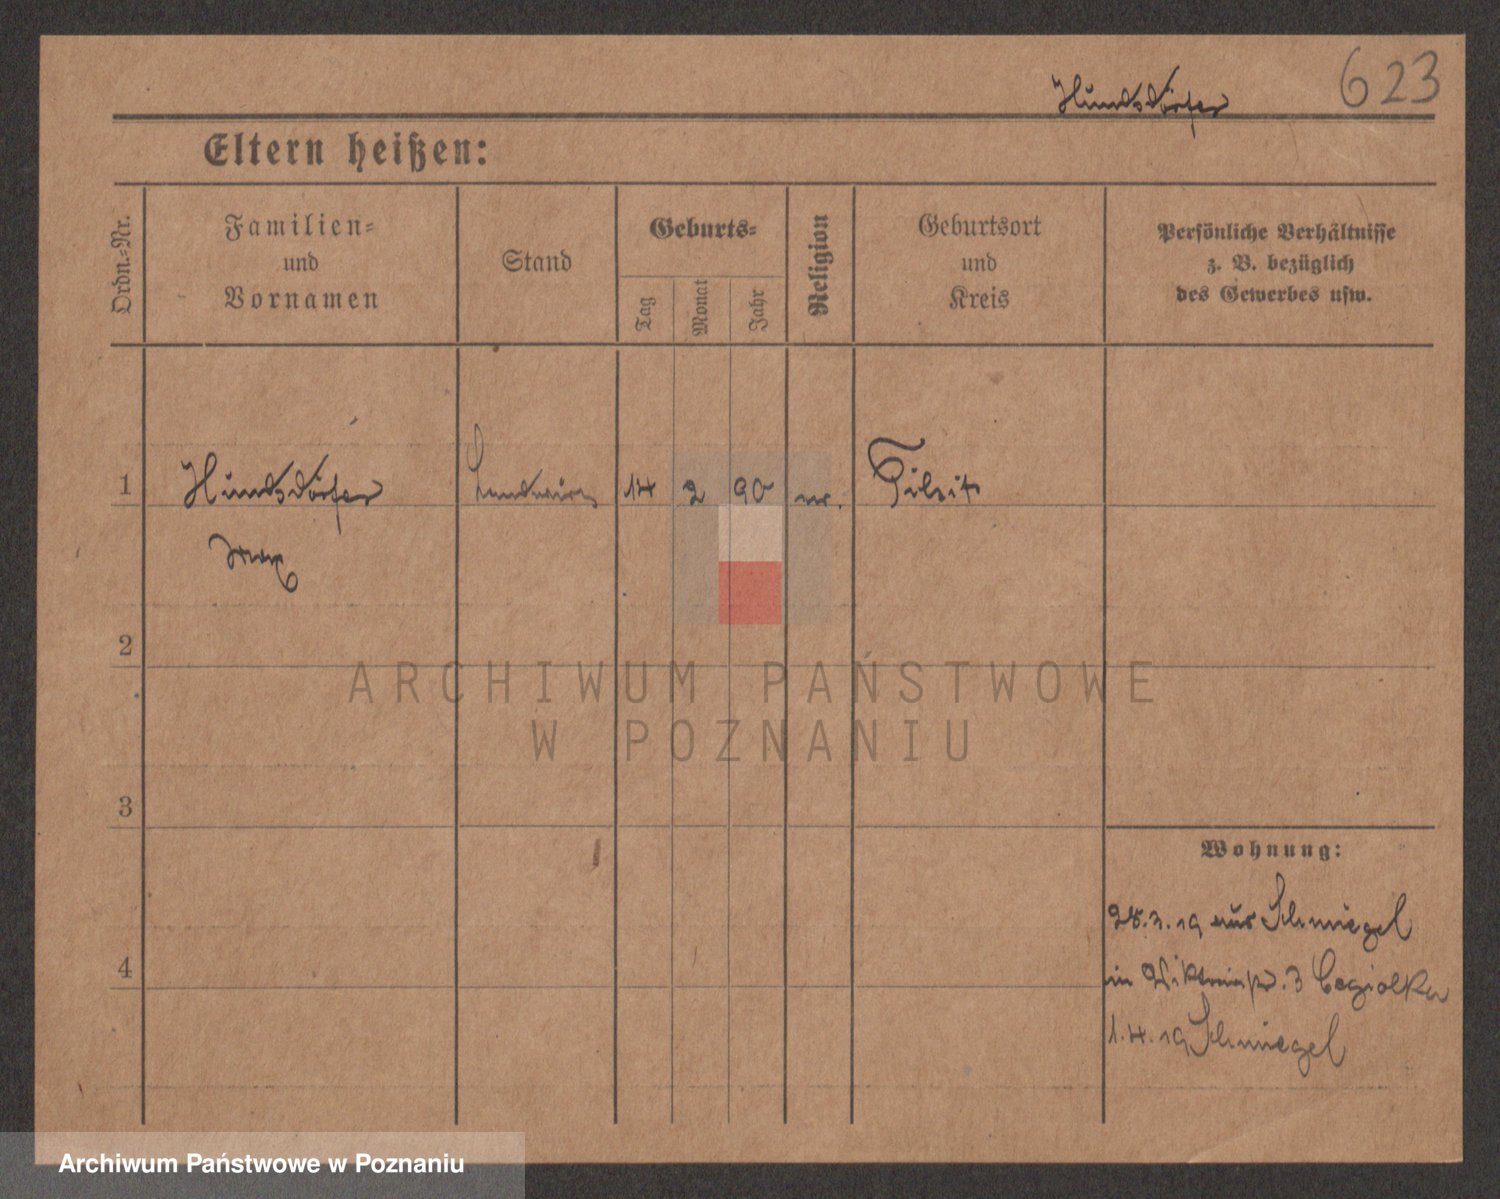 623
Hundsdörfer
Eltern heißen:
Ordn.-Nr.
Familien-
und
Vornamen
Stand
Geburts-
Tag
Monat
Jahr
Religion
Geburtsort
und
Kreis
Persönliche Verhältnisse
z. B. bezüglich
des Gewerbes usw.
1 Hundsdörfer Landwirt 14 2 90 Tilsit
Max
2
ARCHIWUM PAŃSTWOWE
W POZNANIU
3
Wohnung:
28.3.19 aus Schmiegel
in Viktoriastr. 3 Cegiolka
4
1.4.19 Schmiegel
Archiwum Państwowe w Poznaniu